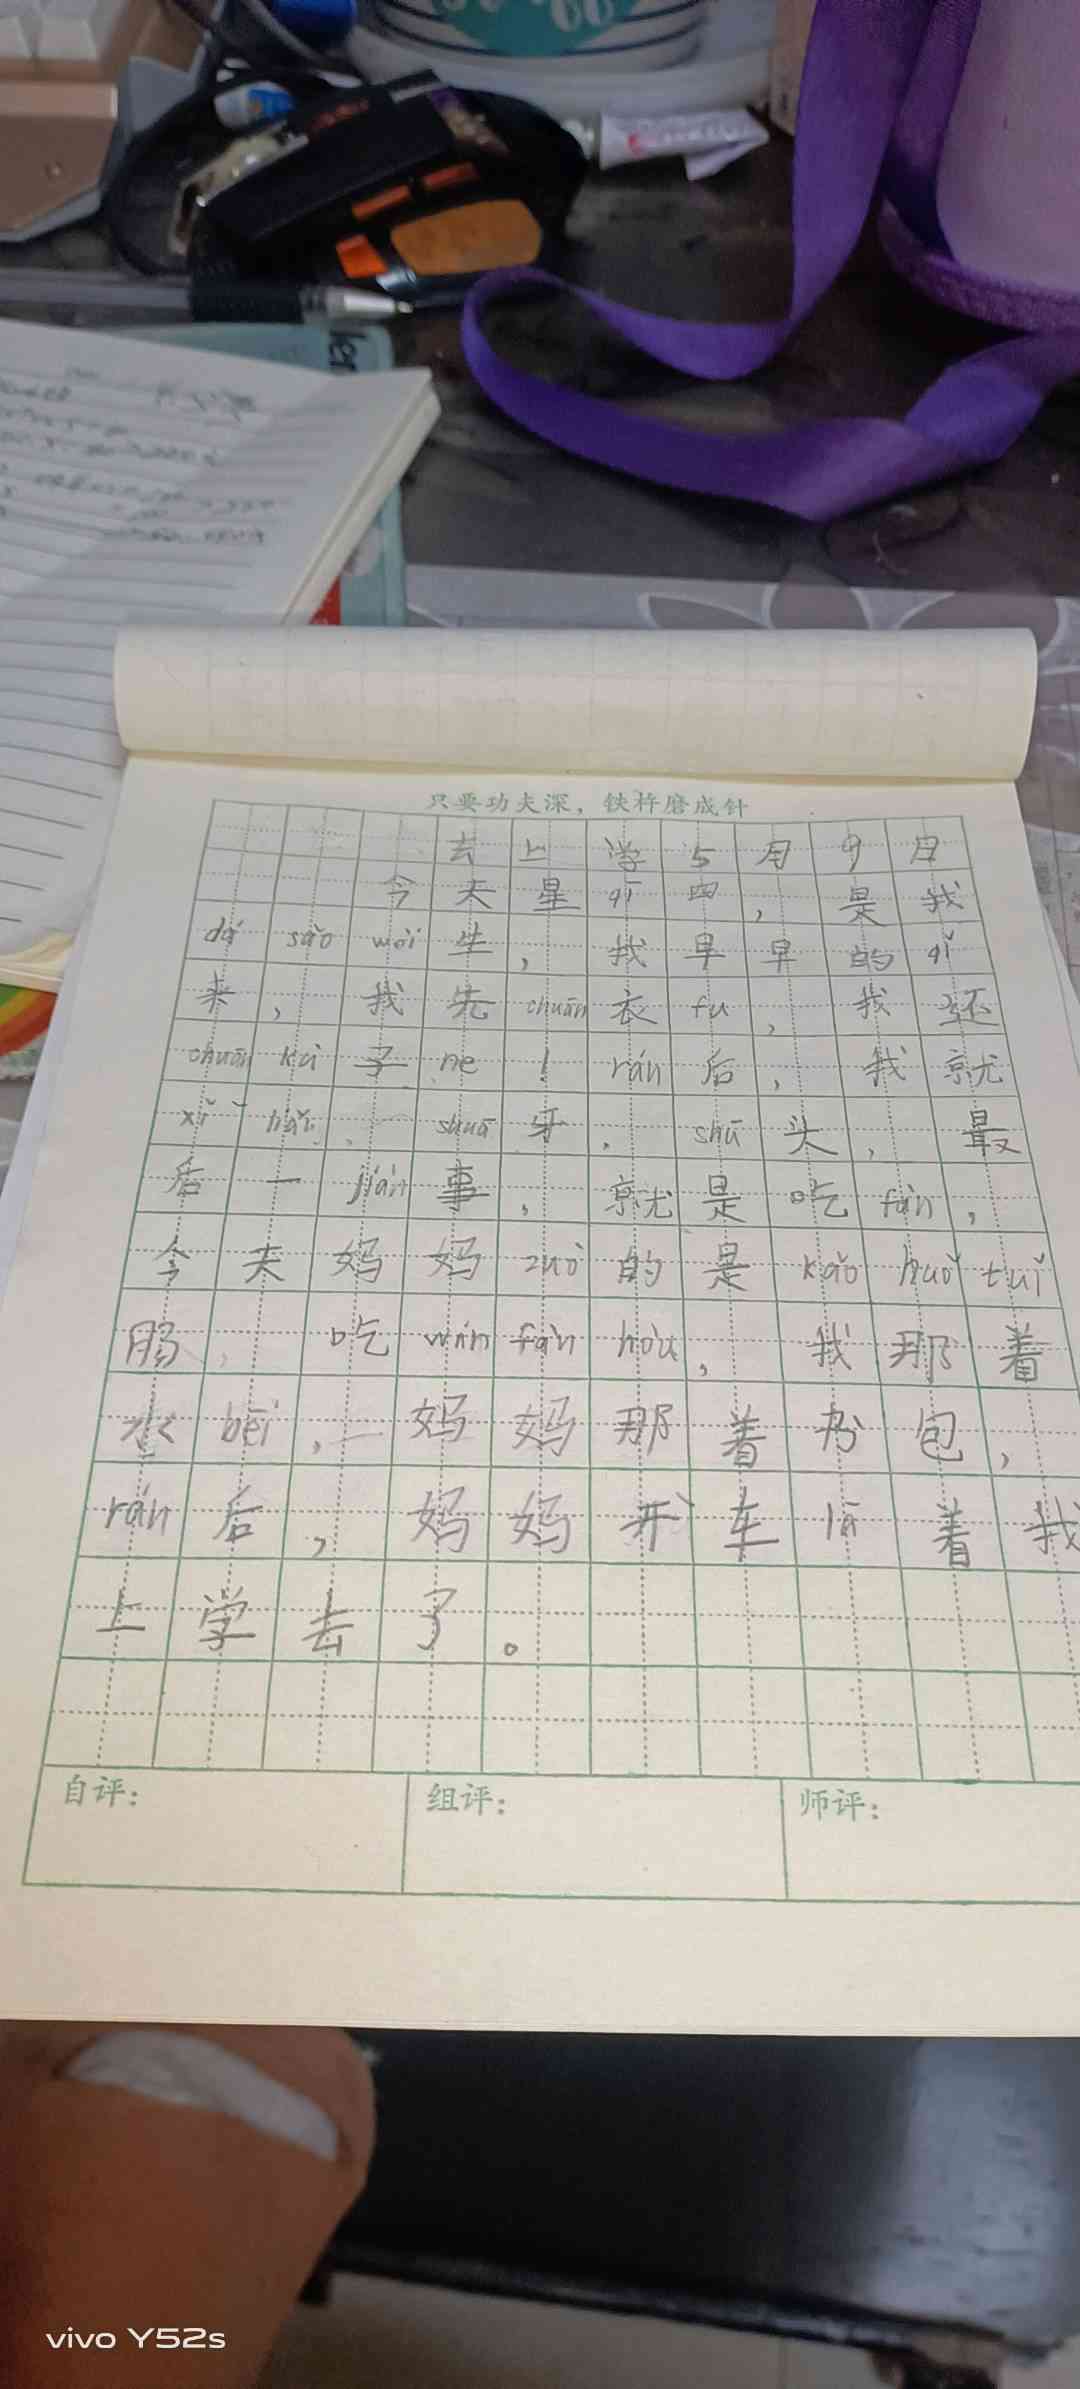 只要功夫深，铁杵磨成针
去上学 5月9日
今天星qī四，是我
dá sǎo wèi生，我早早的qǐ
来，我先chuān衣fu，我还
chuān kù子ne！rán后，我就
shuā牙．shū头，最
后一jiàn事，就是吃fàn，
今天妈妈zuò的是kǎo huǒ tuǐ
肠，吃wán fàn hòu，我那着
水bēi，妈妈那着书包，
rán后，妈妈开车lā着我
上学去了。
自评： 组评： 师评：
vivo Y52s